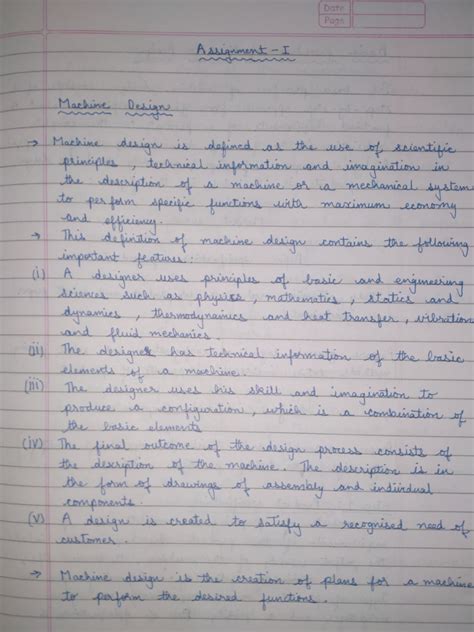 Date
Page
Assignment - I
Machine Design
→ Machine design is defined as the use of scientific
principles, technical information and imagination in
the description of a machine or a mechanical system
to perform specific functions with maximum economy
and efficiency.
→ This definition of machine design contains the following
important features:
(i) A designer uses principles of basic and engineering
sciences such as physics, mathematics, statics and
dynamics, thermodynamics and heat transfer, vibration
and fluid mechanics.
(ii) The designer has technical information of the basic
elements of a machine.
(iii) The designer uses his skill and imagination to
produce a configuration, which is a combination of
the basic elements
(iv) The final outcome of the design process consists of
the description of the machine. The description is in
the form of drawings of assembly and individual
components.
(v) A design is created to satisfy a recognised need of
customer.
→ Machine design is the creation of plans for a machine
to perform the desired functions.